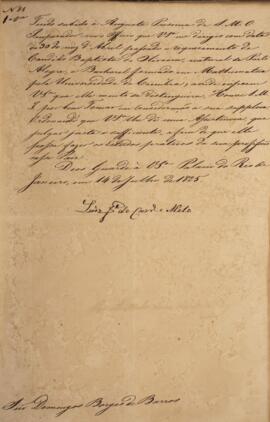 N.º 21
1.ª V.ª
Tendo subido á Augusta Presença de S. M. O
Imperador com Officio que V.S.ª me dirigio com data
de 30 de Abril passado o requerimento de
Candido Baptista de Oliveira, natural de Porto
Alegre, e Bacharel formado em Mathematica
pela Universidade de Coimbra; onde informa
V.S.ª que elle muito se distinguira. Houve S. M.
I. por bem Tomar em consideração a sua supplica
Ordenando que V.S.ª lhe dê uma assistencia, que
julgar justa e sufficiente, a fim de que elle
possa fazer os estudos praticos de sua profissão
nesse Paiz.
Deos Guarde a V.S.ª Palacio do Rio de
Janeiro, em 14 de Julho de 1825
Luiz J.é de Carv.º e Mello
Snr. Domingos Borges de Barros